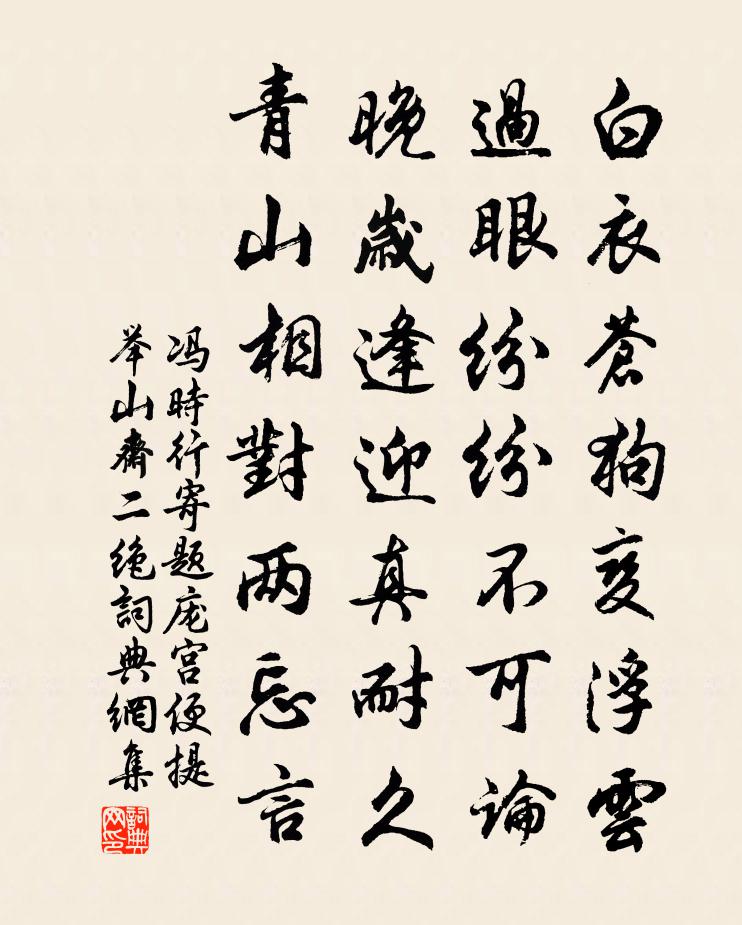 白衣蒼狗變浮雲
過眼紛紛不可論
晚歲逢迎真耐久
青山相對两忘言
冯時行寄题庞宫使提
举山齋二绝詞典網集
詞典
网印